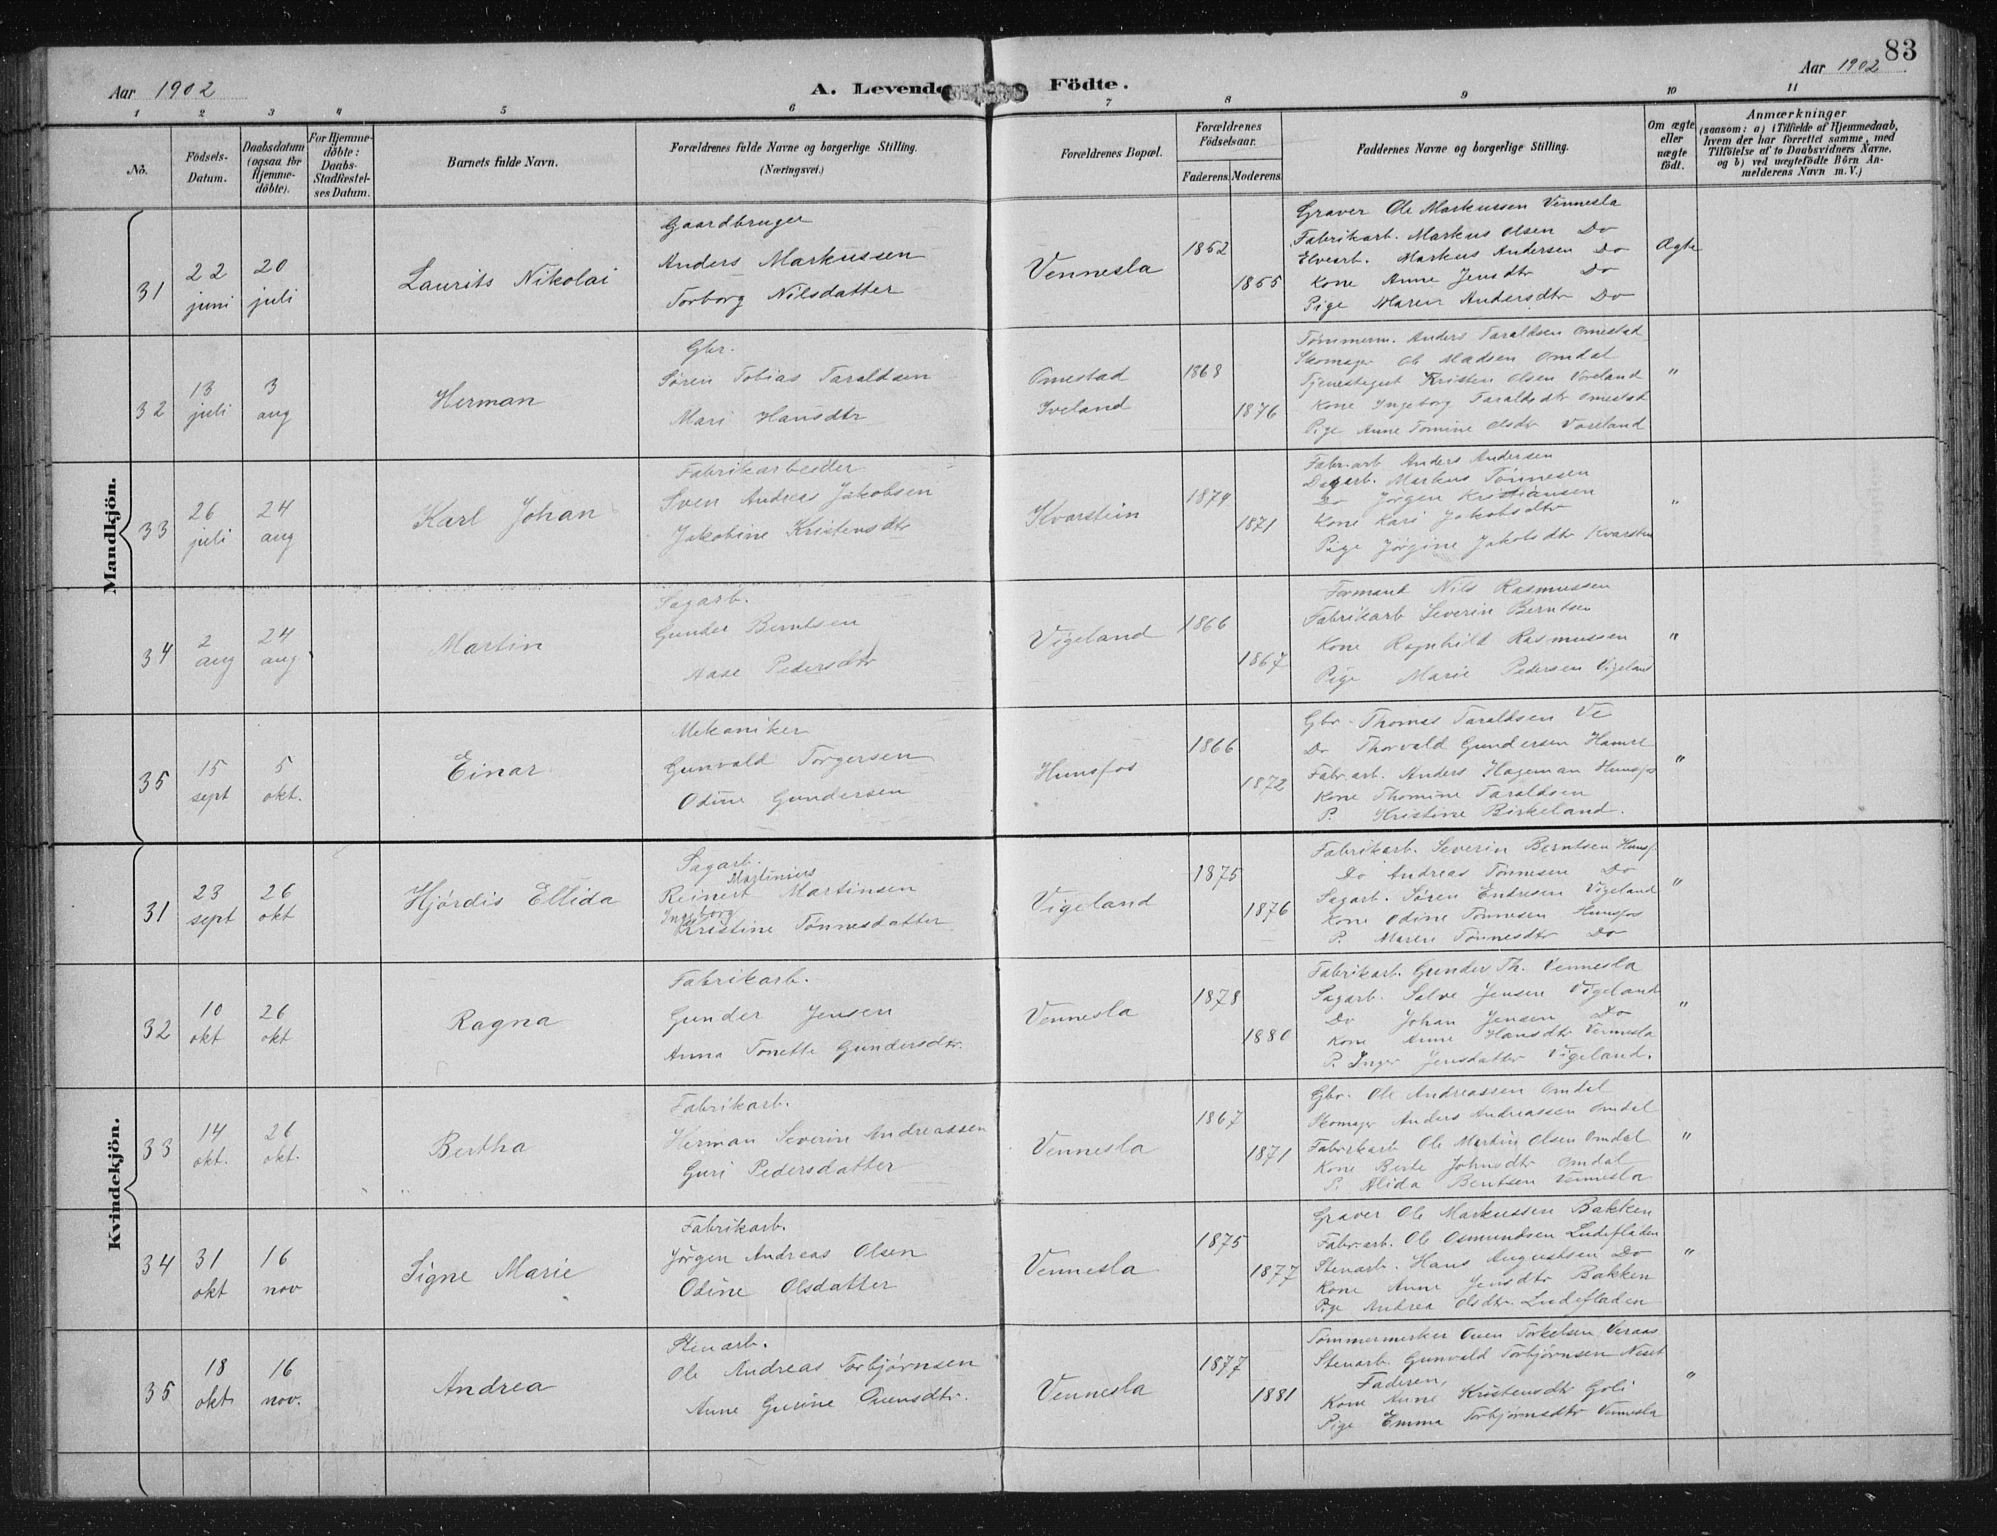 83
Aar 1902
A. Levende Födte.
Aar 1902
1 2 3 4 5 6 7 8 9 10 11
No.
Födsels-Datum.
Daabsdatum (ogsaa for Hjemme-döbte).
For Hjemme-döbte: Daabs-Stadfæstel-ses Datum.
Barnets fulde Navn.
Forældrenes fulde Navne og borgerlige Stilling.
(Næringsvei.)
Forældrenes Bopæl.
Forældrenes Födselsaar.
Faderens. Moderens.
Faddernes Navne og borgerlige Stilling.
Om ægte eller uægte födt.
Anmærkninger
(saasom: a) i Tilfælde af Hjemmedaab,
hvem der har forrettet samme, med
Tilföielse af to Daabsvidners Navne,
og b) ved uægtefödte Börn An-
melderens Navn m. V.)
Mandkjön.
31
22 juni
20 juli
Laurits Nikolai
Gaardbruger
Anders Markussen
Torborg Nilsdatter
Vennesla
1852
1855
Graver Ole Markussen Vennesla
Fabrikarb. Markus Olsen Do
Elvearb. Markus Andersen Do
Kone Anne Jensdtr Do
Pige Maren Andersdtr Do
Ægte
32
13 juli
3 aug
Herman
Gbr.
Søren Tobias Taraldsen
Mari Hansdtr
Omestad
Iveland
1868
1876
Tømmerm. Anders Taraldsen Omestad
Skomager Ole Madsen Omdal
Tjenestegut Kristen Olsen Voreland
Kone Ingeborg Taraldsdtr Omestad
Pige Anne Tomine Olsdtr Voreland
"
33
26 juli
24 aug
Karl Johan
Fabrikarbeider
Sven Andreas Jakobsen
Jakobine Kristensdtr
Kvarstein
1874
1871
Fabr.arb Anders Andersen
Dagarb. Markus Tønnesen
Do Jørgen Kristiansen
Kone Kari Jakobsdtr
Pige Jørgine Jakobsdtr Kvarstein
"
34
2 aug
24 aug
Martin
Sagarb.
Gunder Berntsen
Aase Pedersdtr
Vigeland
1866
1867
Formand Nils Rasmussen
Fabrikarb Severin Berntsen
Kone Ragnhild Rasmussen
Pige Marie Pedersen Vigeland
"
35
15 sept
5 okt.
Einar
Mekaniker
Gunvald Torgersen
Odine Gundersen
Hunsfos
1866
1872
Gbr. Thomas Taraldsen Ve
Do Thorvald Gundersen Hamre
Fabr.arb. Anders Hageman Hunsfos
Kone Thomine Taraldsen
P. Kristine Birkeland.
"
Kvindekjön.
31
23 sept
26 okt
Hjørdis Ellida
Sagarb.
Martinius
Reinert Martinsen
Ingeborg
Kristine Tønnesdatter
Vigeland
1875
1876
Fabrikarb. Severin Berntsen Hunsf.
Do Andreas Tønnesen Do
Sagarb. Søren Endresen Vigeland
Kone Odine Tønnesen Hunsfos
P. Maren Tønnesdtr Do
"
32
10 okt
26 okt
Ragna
Fabrikarb.
Gunder Jensen
Anna Tonette Gundersdtr.
Vennesla
1878
1880
Fabrikarb. Gunder Th. Vennesla
Sagarb. Salve Jensen Vigeland
Do Johan Jensen Do
Kone Anne Hansdtr Vennesla
P. Inger Jensdatter Vigeland.
"
33
14 okt.
26 okt.
Bertha
Fabrikarb.
Herman Severin Andreassen
Guri Pedersdatter
Vennesla
1867
1871
Gbr. Ole Andreassen Omdal
Skomager Anders Andreassen Omdal
Fabrikarb Ole Martin Olsen Omdal
Kone Berte Johnsdtr Omdal
P. Alida Bentsen Vennesla
"
34
31 okt
16 nov
Signe Marie
Fabrikarb.
Jörgen Andreas Olsen
Odine Olsdatter
Vennesla
1875
1877
Graver Ole Markussen Bakken
Fabr.arb. Ole Osmundsen Ludefladen
Stenarb. Hans Augustsen Do
Kone Anne Jensdtr Bakken
Pige Andrea Olsdtr. Ludefladen
"
35
18 okt.
16 nov.
Andrea
Stenarb.
Ole Andreas Torbjørnsen
Anne Gurine Ouensdtr.
Vennesla
1877
1881
Tømmermerker Ouen Torkelsen Veraas
Stenarb. Gunvald Torbjørnsen Neset
Faderen,
Kone Anne Kristensdtr Goli
Pige Emma Torbjørnsdtr Vennesla
"